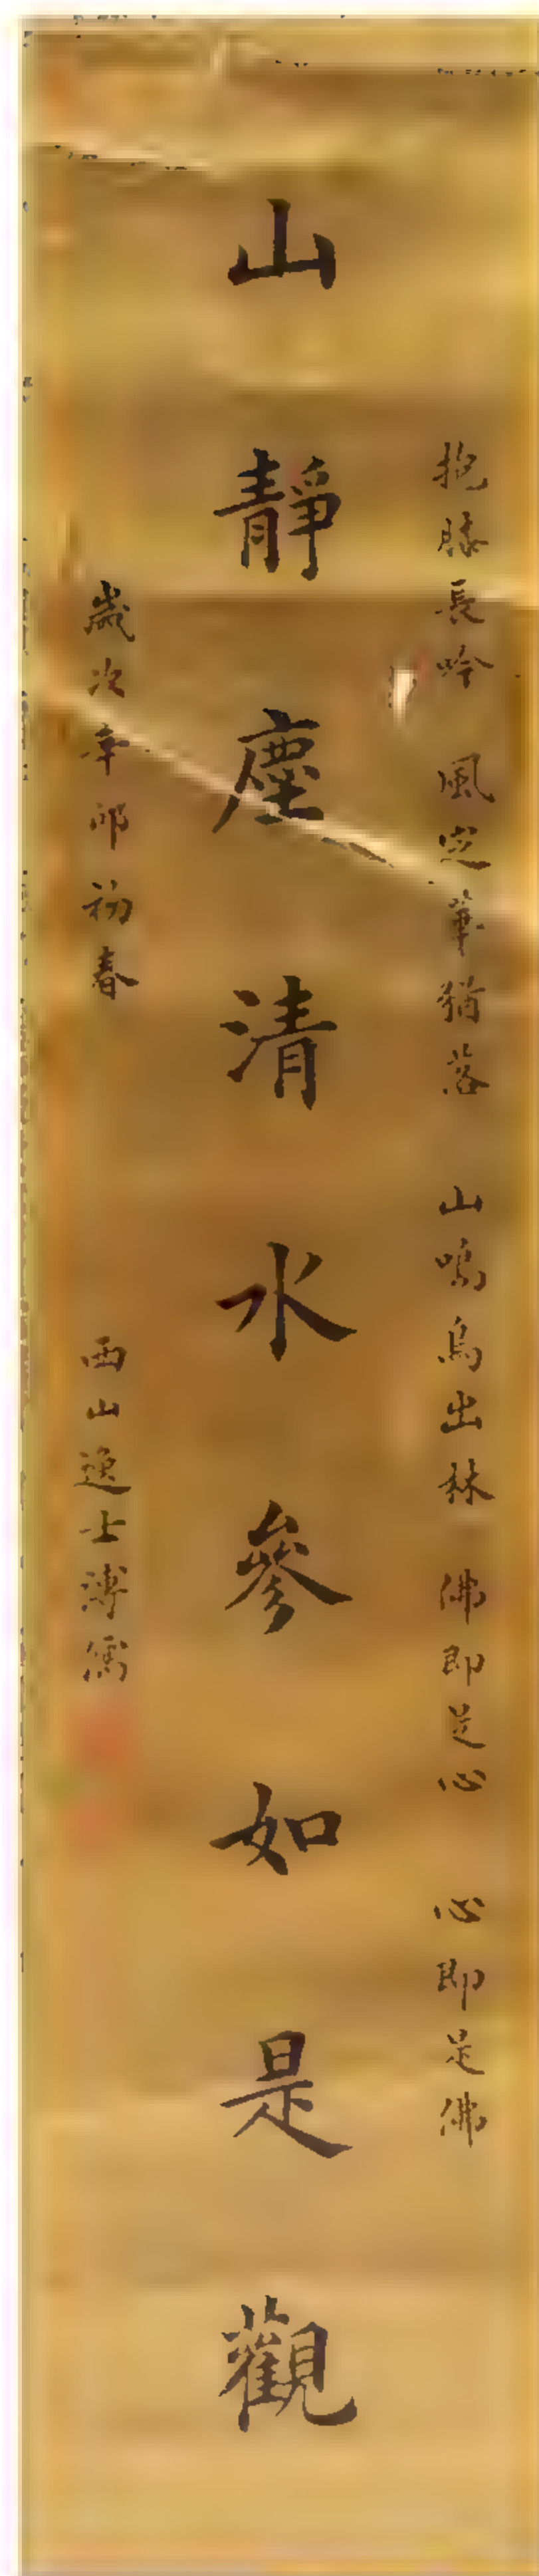 抱膝長吟 風定華猶落 山鳴鳥出林 佛即是心 心即是佛
山靜塵清水參如是觀
歲次辛卯初春 西山逸士溥儒